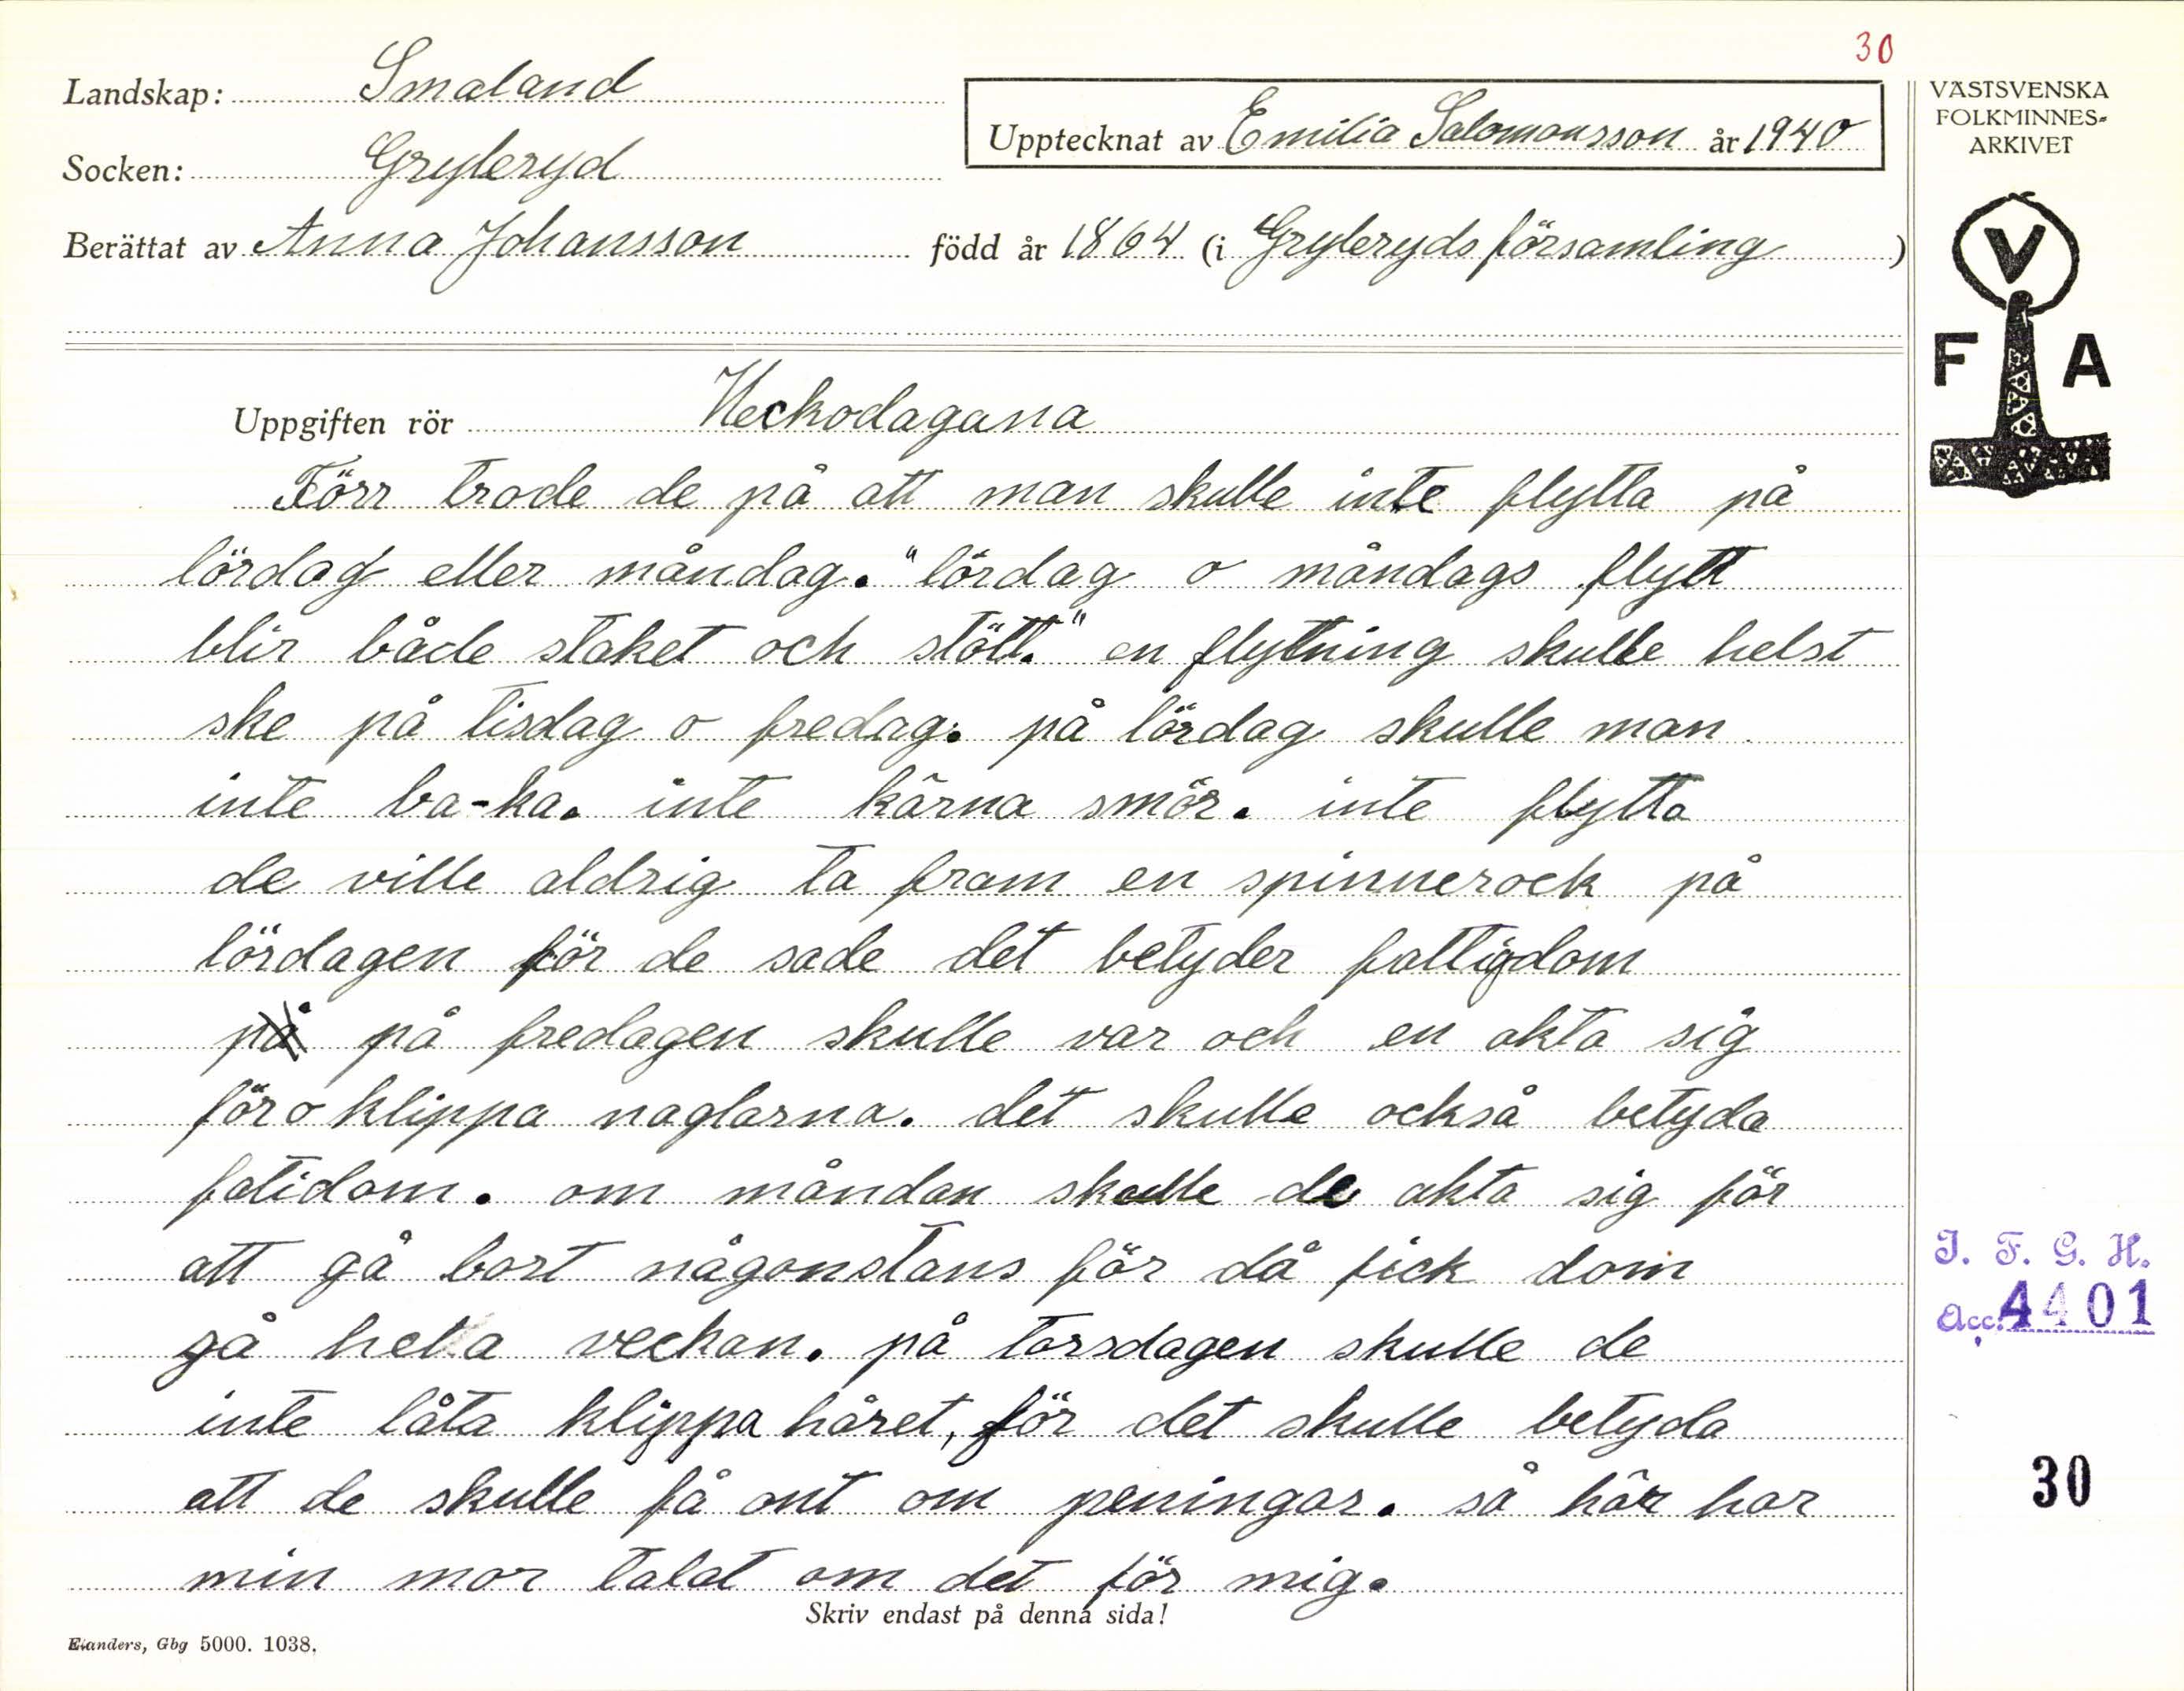 30
Landskap: Smaland
Socken: Gryteryd
Upptecknat av Emilia Salomonsson år 1940
Berättat av Anna Johansson född år 1864 (i Gryteryds församling)
VÄSTSVENSKA
FOLKMINNES-
ARKIVET
V
F A
Uppgiften rör Veckodagana
Förr trode de på att man skulle inte flytta på
lördag eller måndag. "lördag o måndags flytt
blir både staket och stött." en flyttning skulle helst
ske på tisdag o fredag. på lördag skulle man
inte ba-ka. inte kärna smör. inte flytta
de ville aldrig ta fram en spinnerock på
lördagen för de sade det betyder fattigdom
på på fredagen skulle var och en akta sig
för o klippa naglarna. det skulle också betyda
fatidom. om måndan skulle de akta sig för
att gå bort någonstans för då fick dom
gå hela veckan. på torsdagen skulle de
inte låta klippa håret, för det skulle betyda
att de skulle få ont om peningar. så här har
min mor talat om det för mig.
Skriv endast på denna sida!
Elanders, Gbg 5000. 1038.
I. F. G. H.
Acc. 4401
30